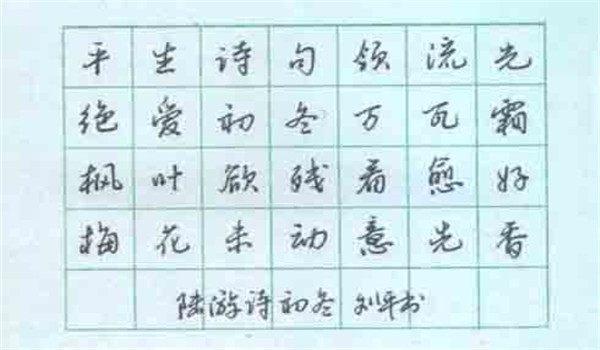 平生诗句领流光
绝爱初冬万瓦霜
枫叶欲残看愈好
梅花未动意先香
陆游诗初冬 刘平书